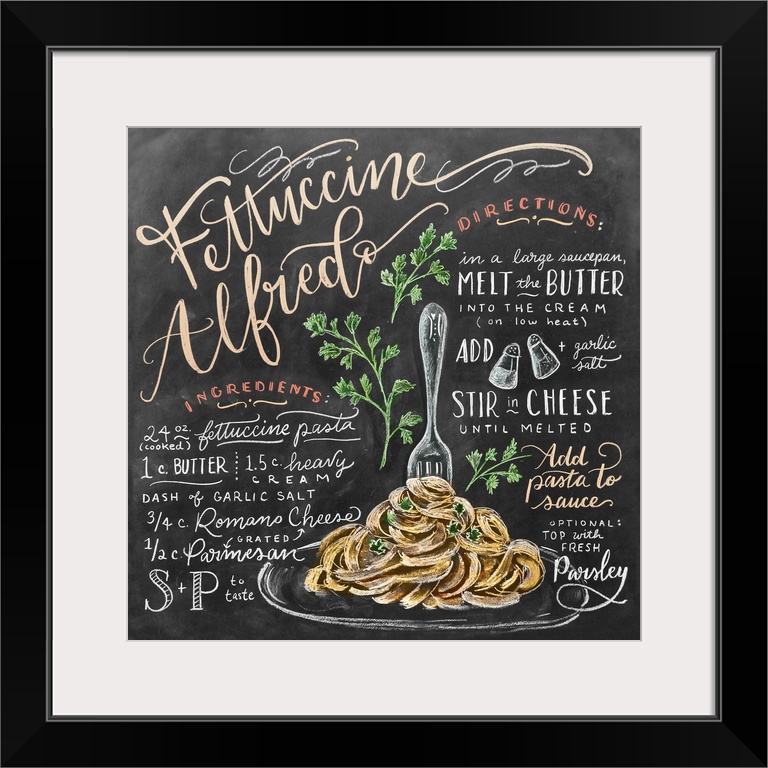 Fettuccine
Alfredo
INGREDIENTS:
24 oz. fettuccine pasta
(cooked)
1 c. BUTTER 1.5 c. heavy
CREAM
DASH of GARLIC SALT
3/4 c. Romano Cheese
GRATED
1/2 c. Parmesan
S+P to
taste
DIRECTIONS:
in a large saucepan,
MELT the BUTTER
INTO THE CREAM
(on low heat)
ADD + garlic
salt
STIR in CHEESE
UNTIL MELTED
Add
pasta to
sauce
OPTIONAL:
TOP with
FRESH
Parsley